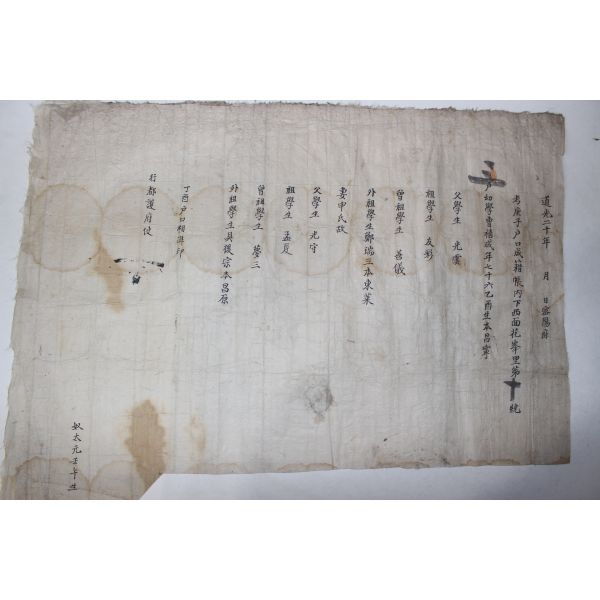 道光二十年 月 日密陽府
考庚子戶口成籍帳內下西面花峯里第十統
三戶幼學曺禧成年七十六乙酉生本昌寧
父學生 光雲
祖學生 友彩
曾祖學生 善儀
外祖學生鄭瑞三本東萊
妻申氏故
父學生 光守
祖學生 孟夏
曾祖學生 夢三
外祖學生具 宗本昌原
丁酉戶口相準印
行都護府使
奴太元壬午生